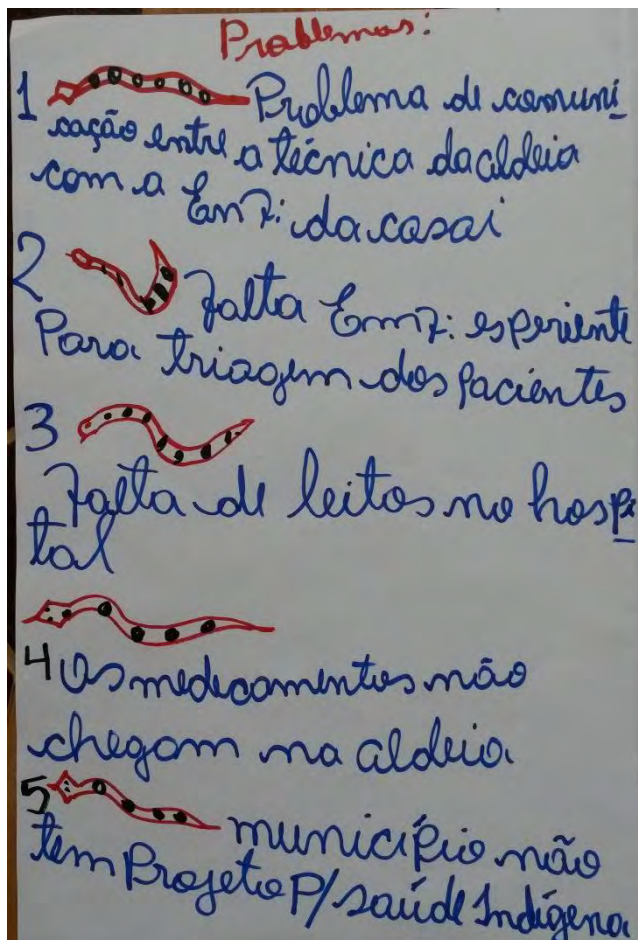 Problemas:
1 Problema de comuni
cação entre a técnica da aldeia
com a Enf: da casai
2 Falta Enf: esperiente
Para triagem dos pacientes
3
Falta de leitos no hospi
tal
4 Os medicamentos não
chegam na aldeia
5 município não
tem Projeto P/ saúde Indígena